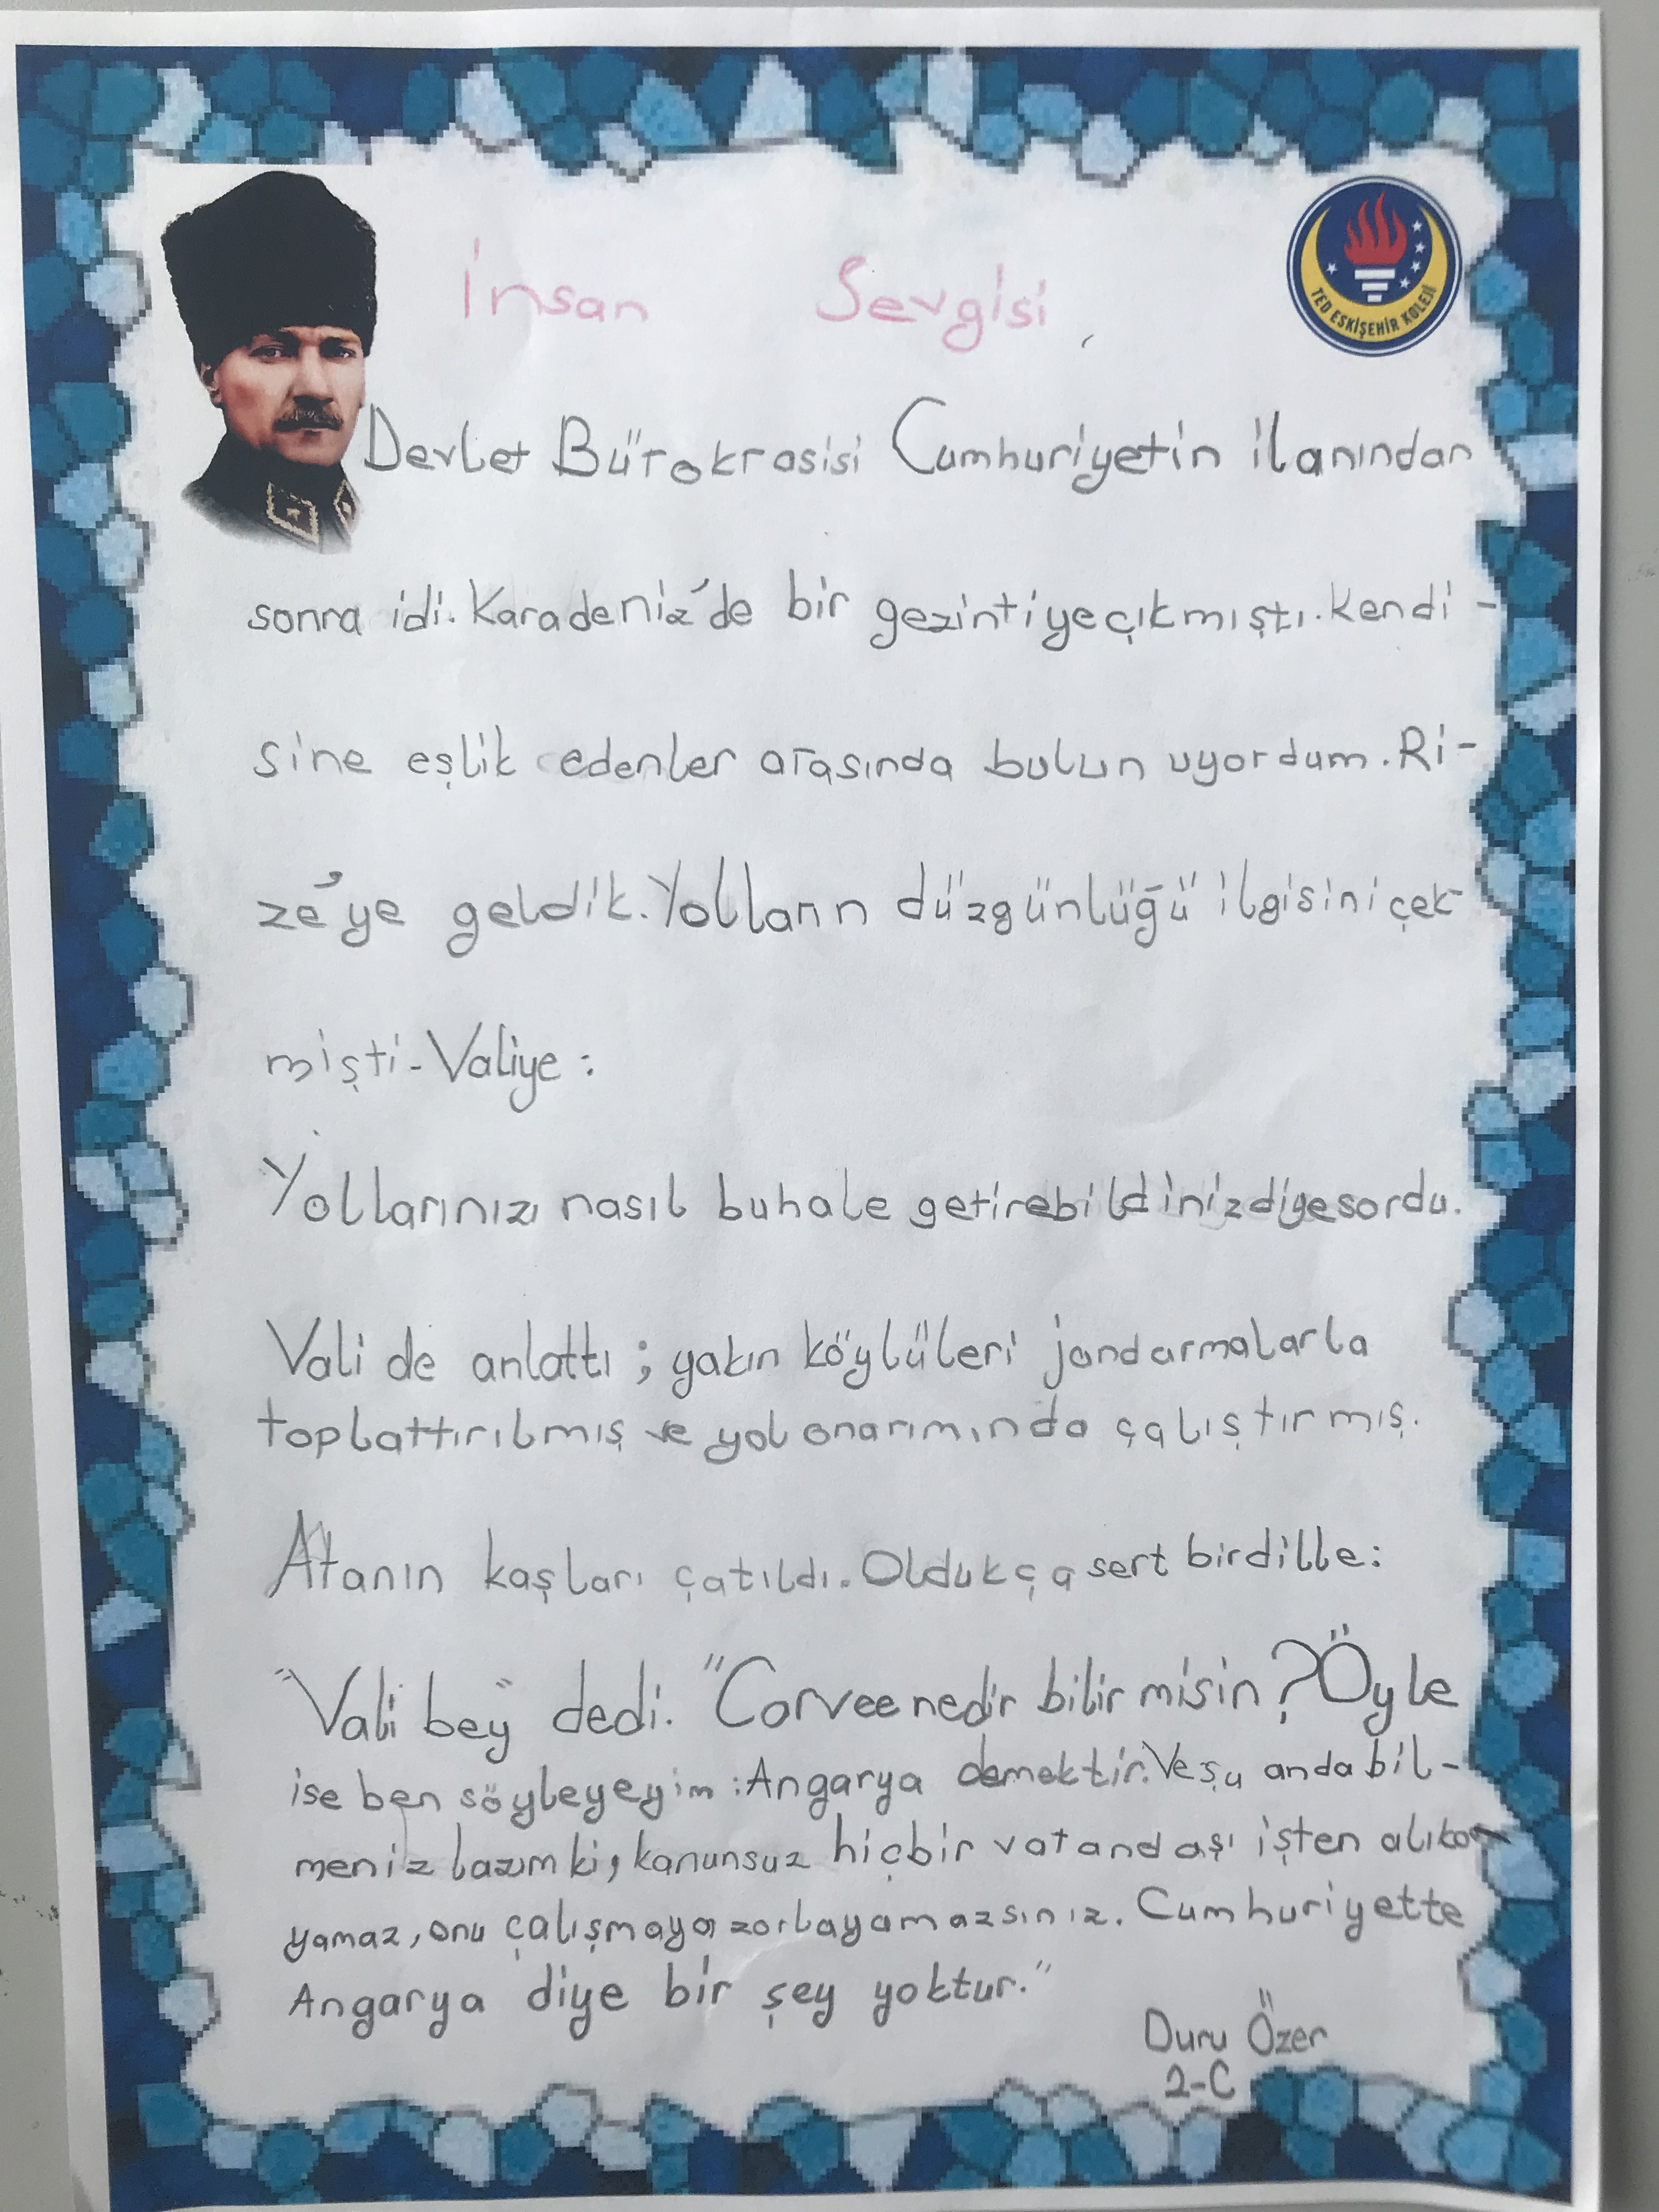 İnsan Sevgisi
TED ESKİŞEHİR KOLEJİ
Devlet Bürokrasisi Cumhuriyetin ilanından
sonra idi. Karadeniz'de bir gezintiye çıkmıştı. Kendi-
sine eşlik edenler arasında bulunuyordum. Ri-
ze'ye geldik. Yolların düzgünlüğü ilgisini çek-
mişti-Valiye:
Yollarınızı nasıl bu hale getirebildiniz diye sordu.
Vali de anlattı; yakın köylüleri jandarmalarla
toplattırılmış ve yol onarımında çalıştırmış.
Atanın kaşları çatıldı. Oldukça sert birdille:
"Vali bey" dedi. "Corvee nedir bilir misin? Öyle
ise ben söyleyeyim: Angarya demektir. Ve şu anda bil-
meniz lazım ki, kanunsuz hiçbir vatandaşı işten alıko-
yamaz, onu çalışmaya zorlayamazsınız. Cumhuriyette
Angarya diye bir şey yoktur."
Duru Özer
2-C